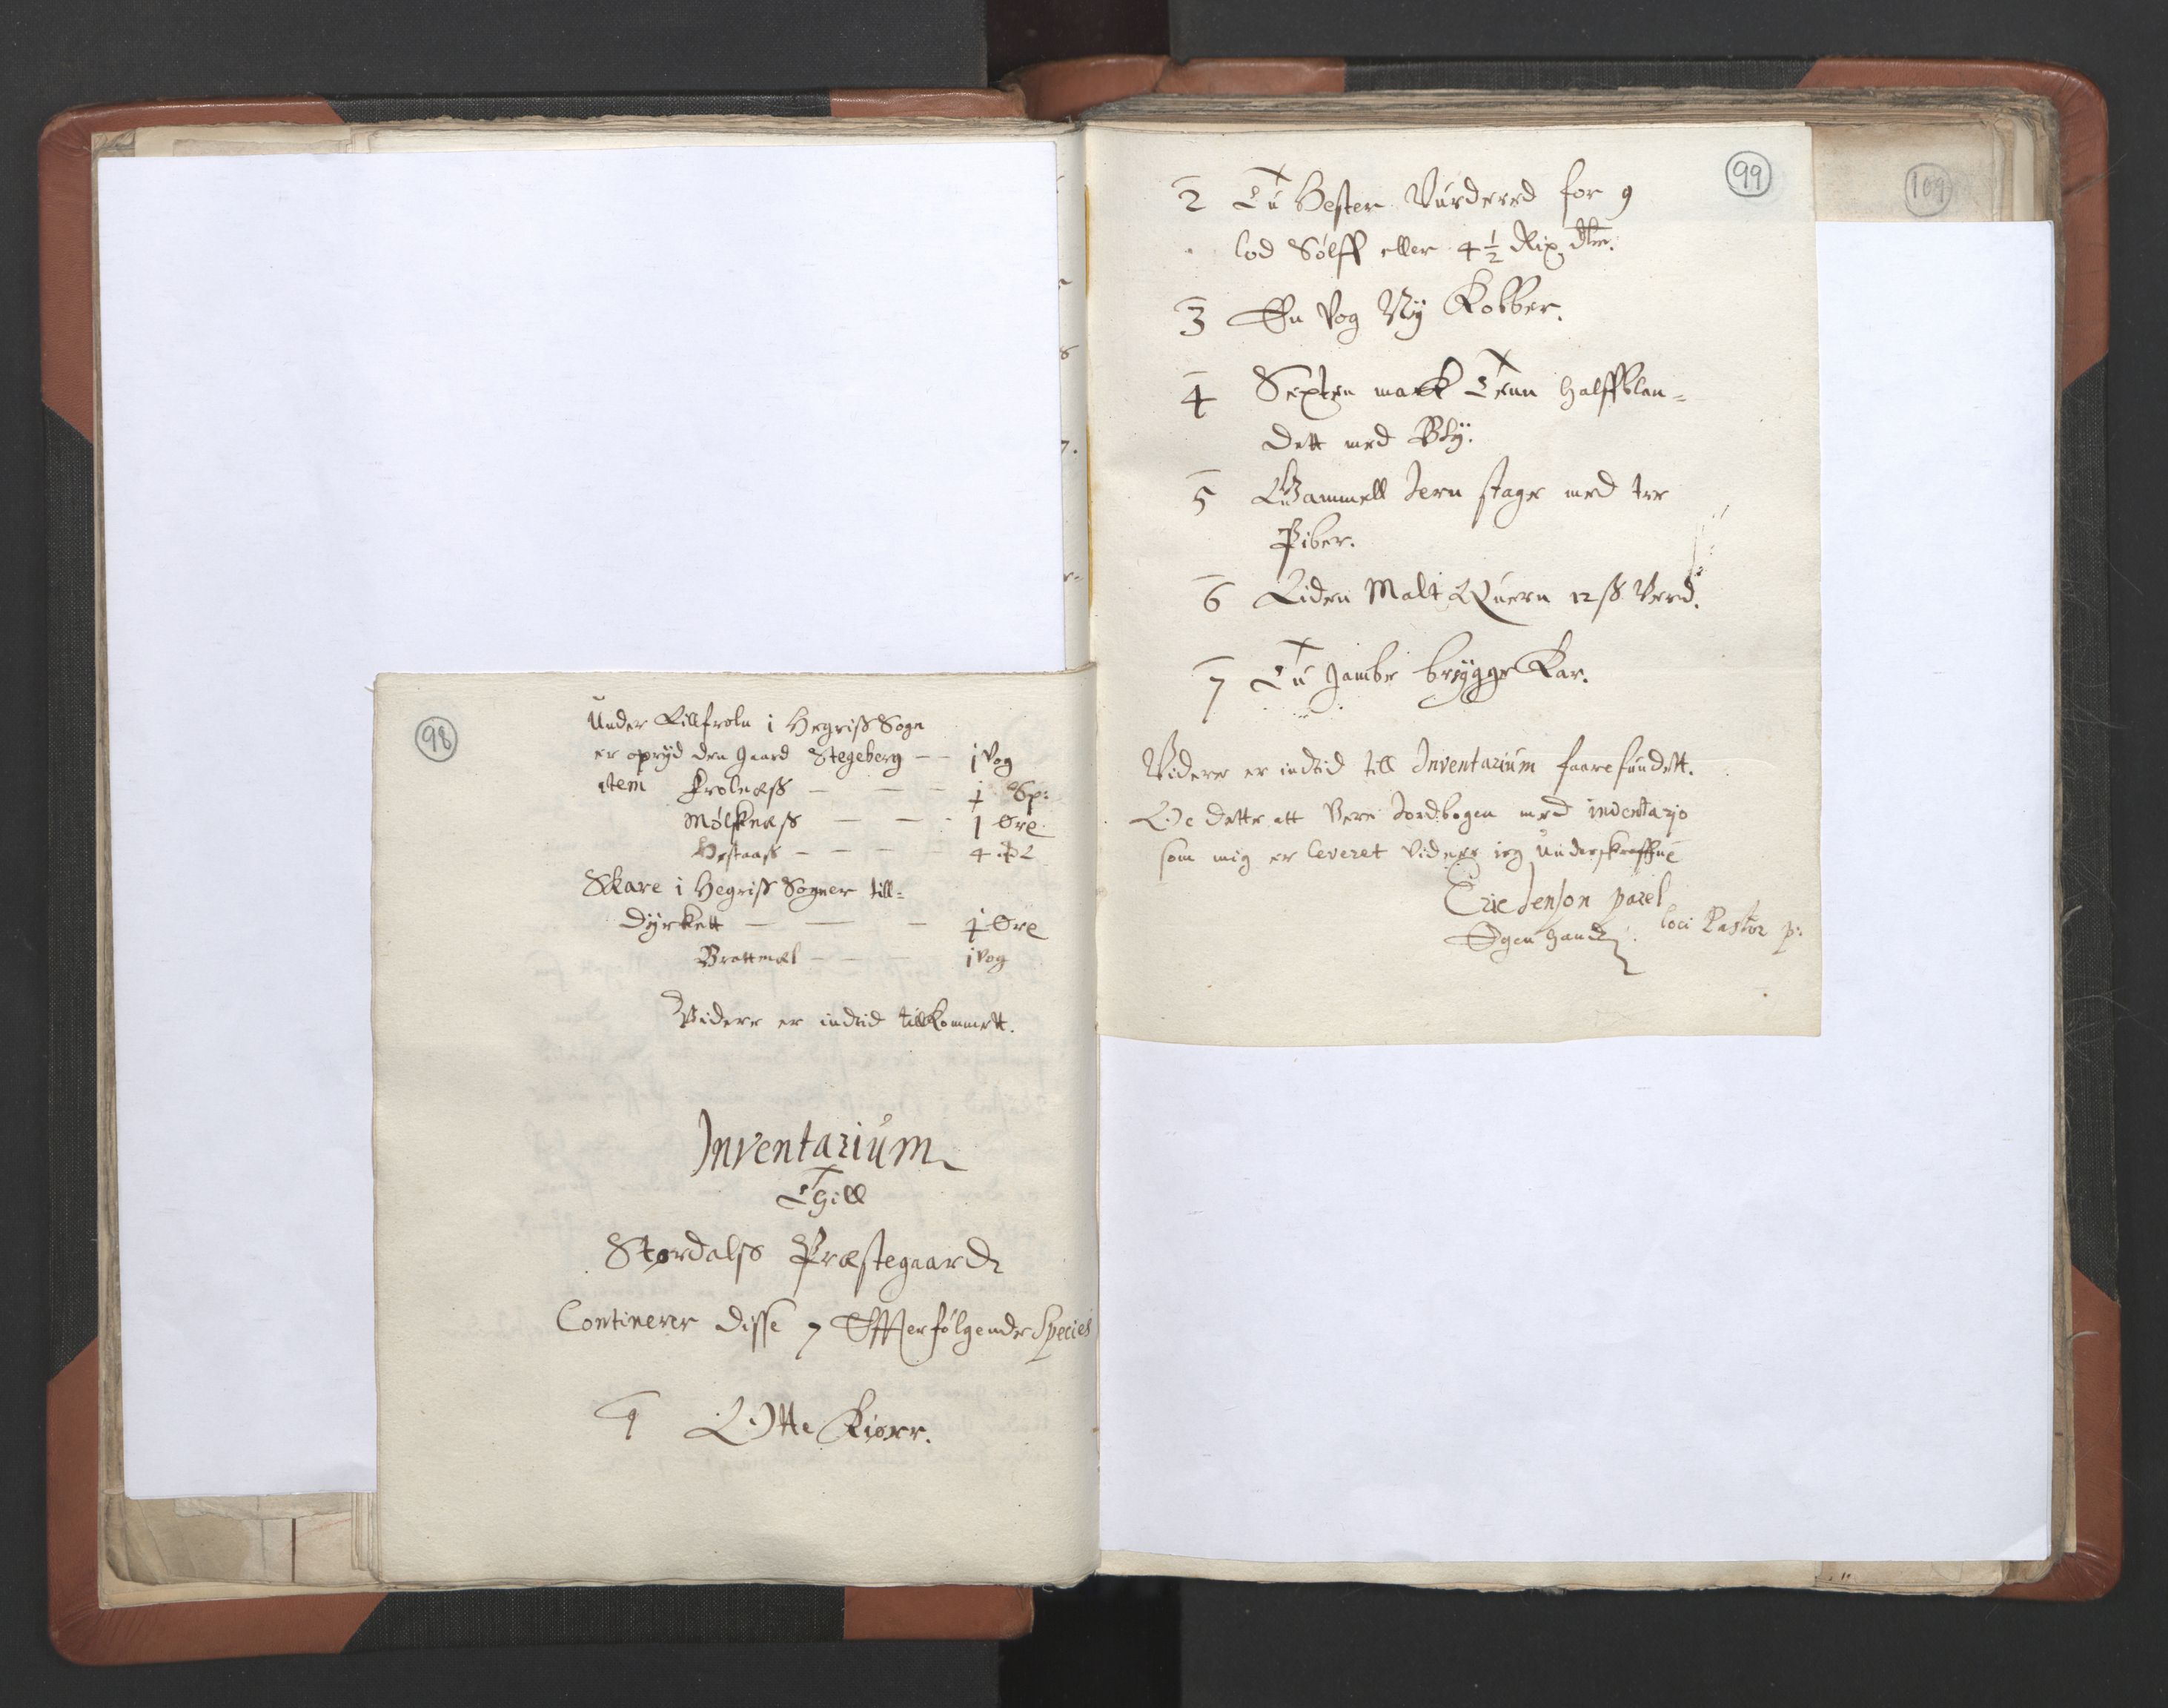 98
Under Lillfroln i Hegriß Sogn
er opryd den gaard Stegeberg — — j Vog
item Frolneß — — — ½ Sp:
Mølskneß — — — 1 Øre
— — — — 4
Skare i Hegriß Sogner till=
dyrkett — — — ½ Øre
Brattmel — — — j Vog
Videre er indtid tillkommett.
Inventarium
Thill
Størdalss Præstegaard
Continerer disse 7 Effterfølgende Species
1 Otte Kiørr.
99
2 Tu Hester Vurdered for 9
lod Sølff eller 4½ Rix dlr.
3 En Vog Ny Kobber.
4 Sexten mark Tenn halffblan=
dett med Bly.
5 Gammell Jern stage med tre
Piber.
6 Liden Malt Quern 12 ß Verd.
7 Tu gamble brygge Kar.
Videre er indtid till Inventarium faarefundett.
Oc dette att Vere Jordbogen med inventario
som mig er leveret vidner ieg Underskreffne
Eric Jenson
Egen Haand loci Pastor
109